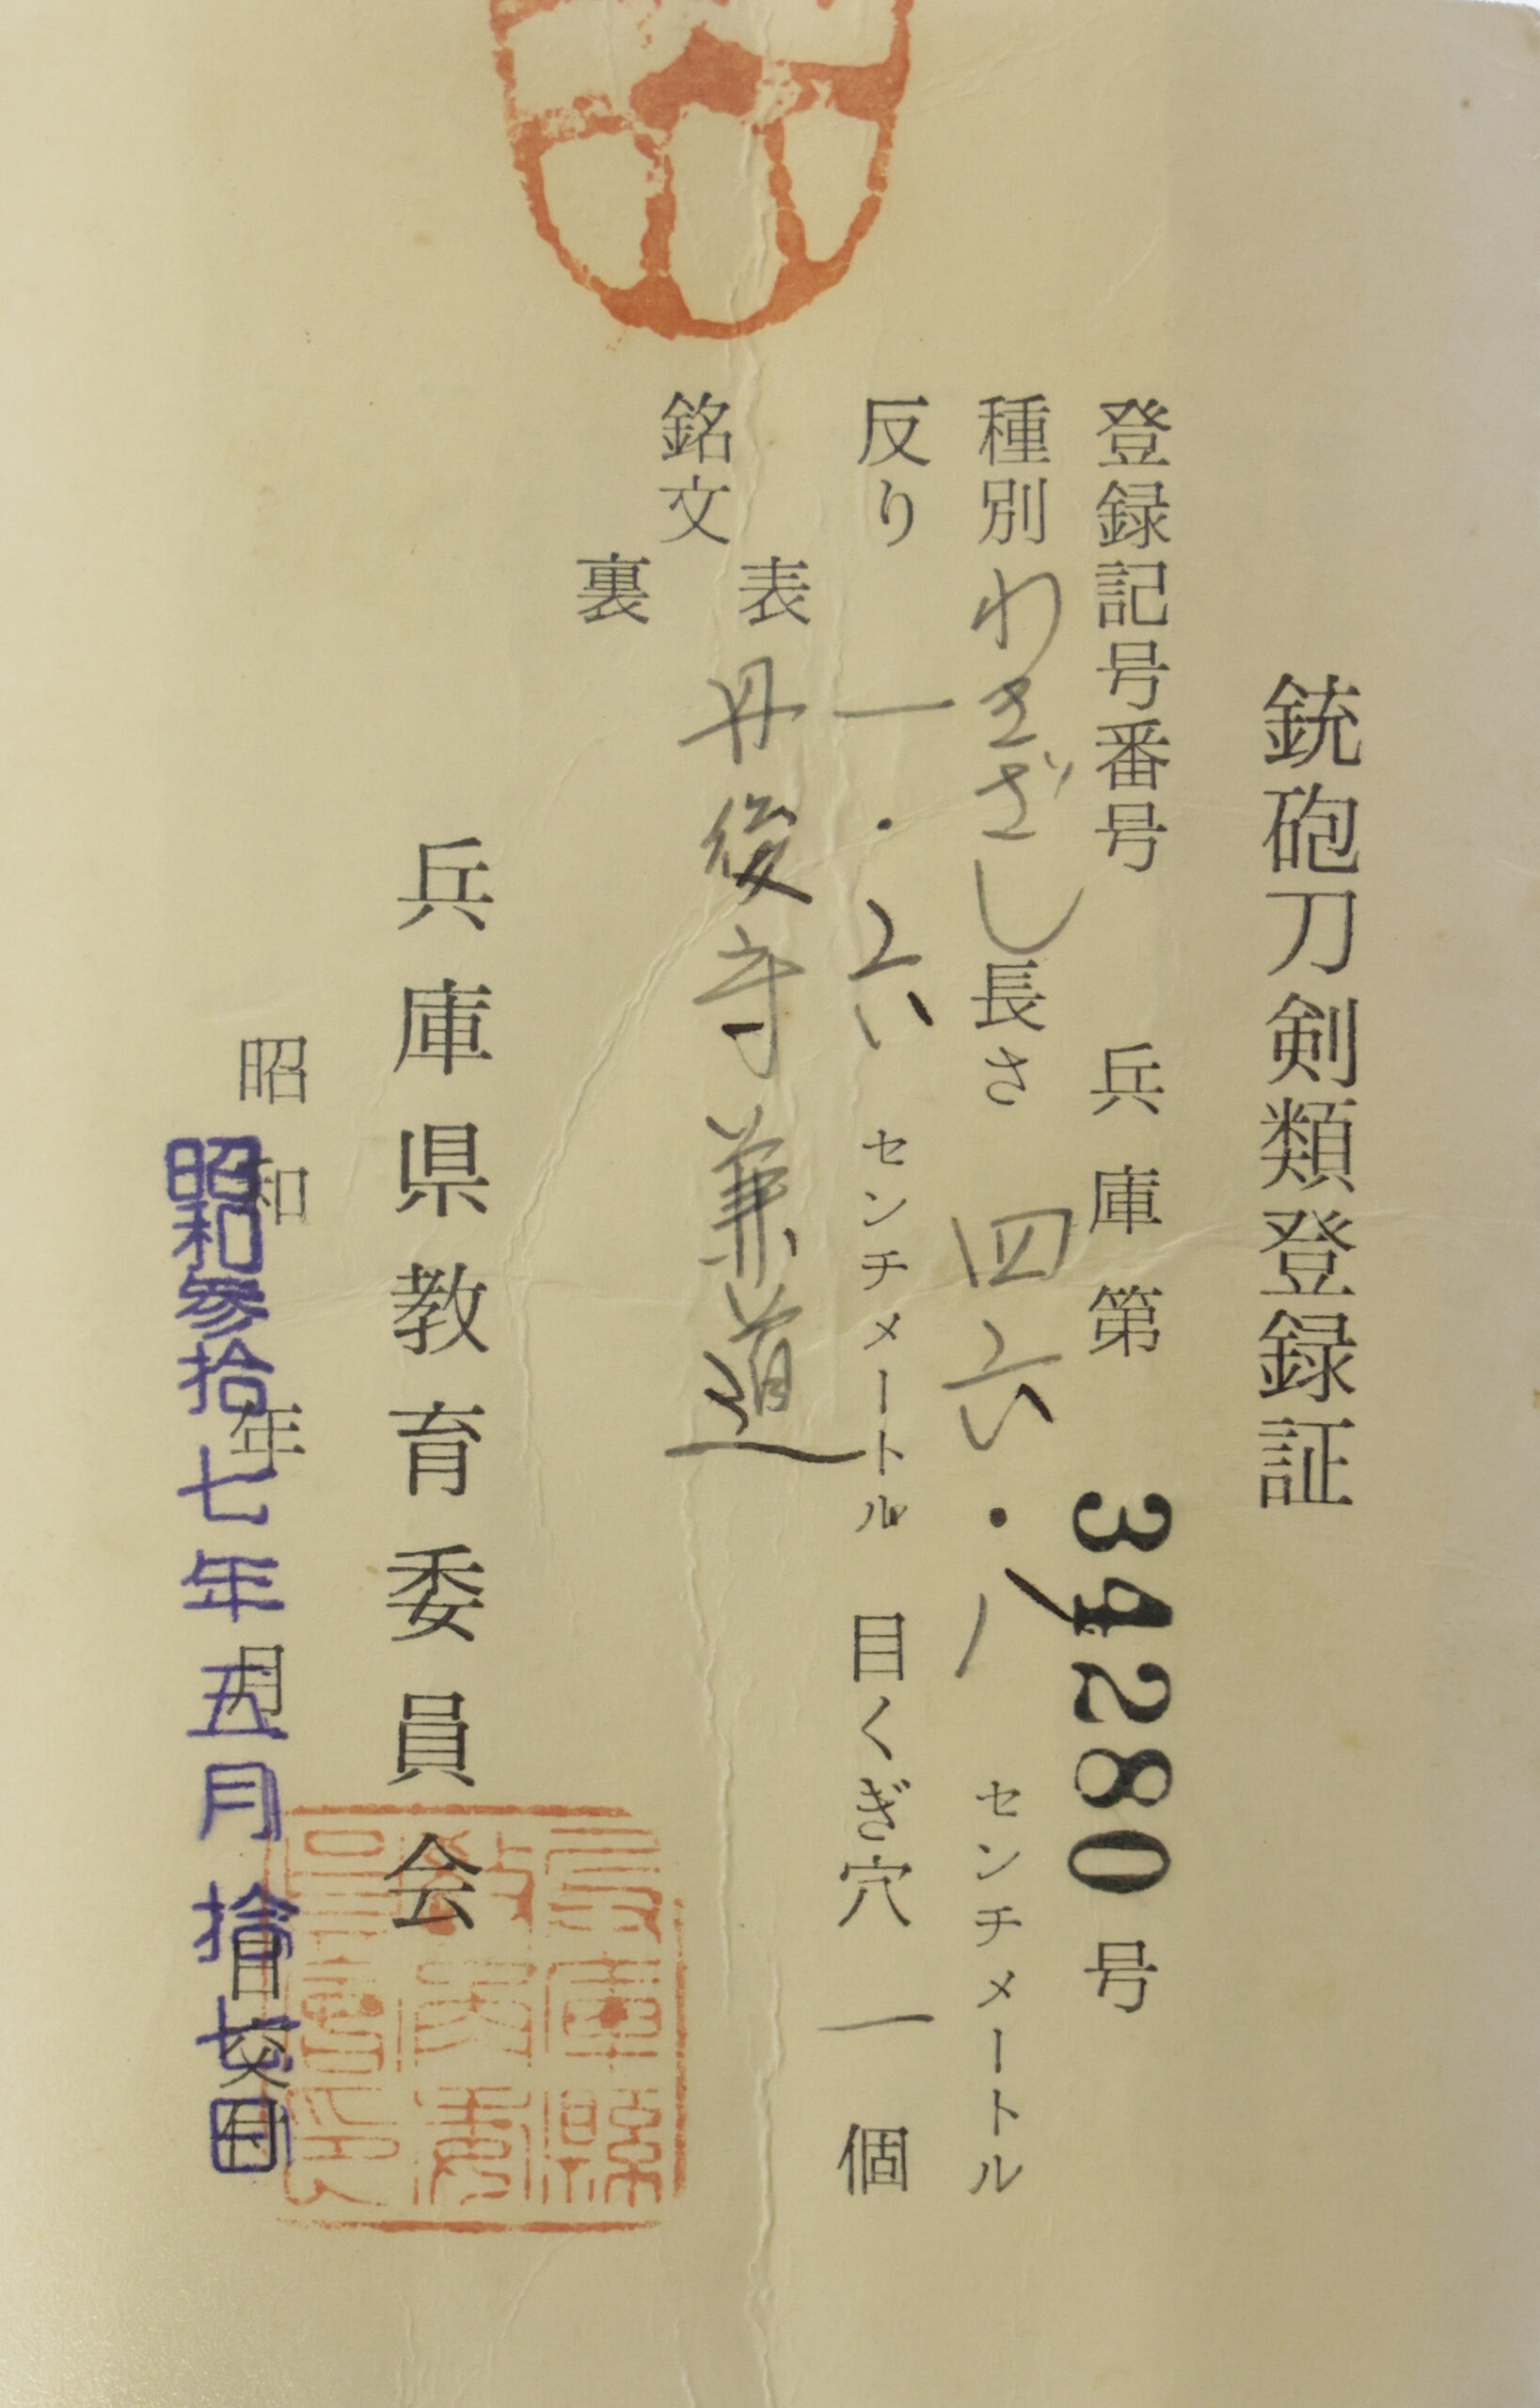 銃砲刀剣類登録証
登録記号番号 兵庫第 34280 号
種別 わきざし 長さ 四六・八 センチメートル
反り 一・六 センチメートル 目くぎ穴 一 個
銘文 表 丹後守兼道
裏
兵庫県教育委員会
昭和 年 月 日交付
昭和参拾七年五月拾七日